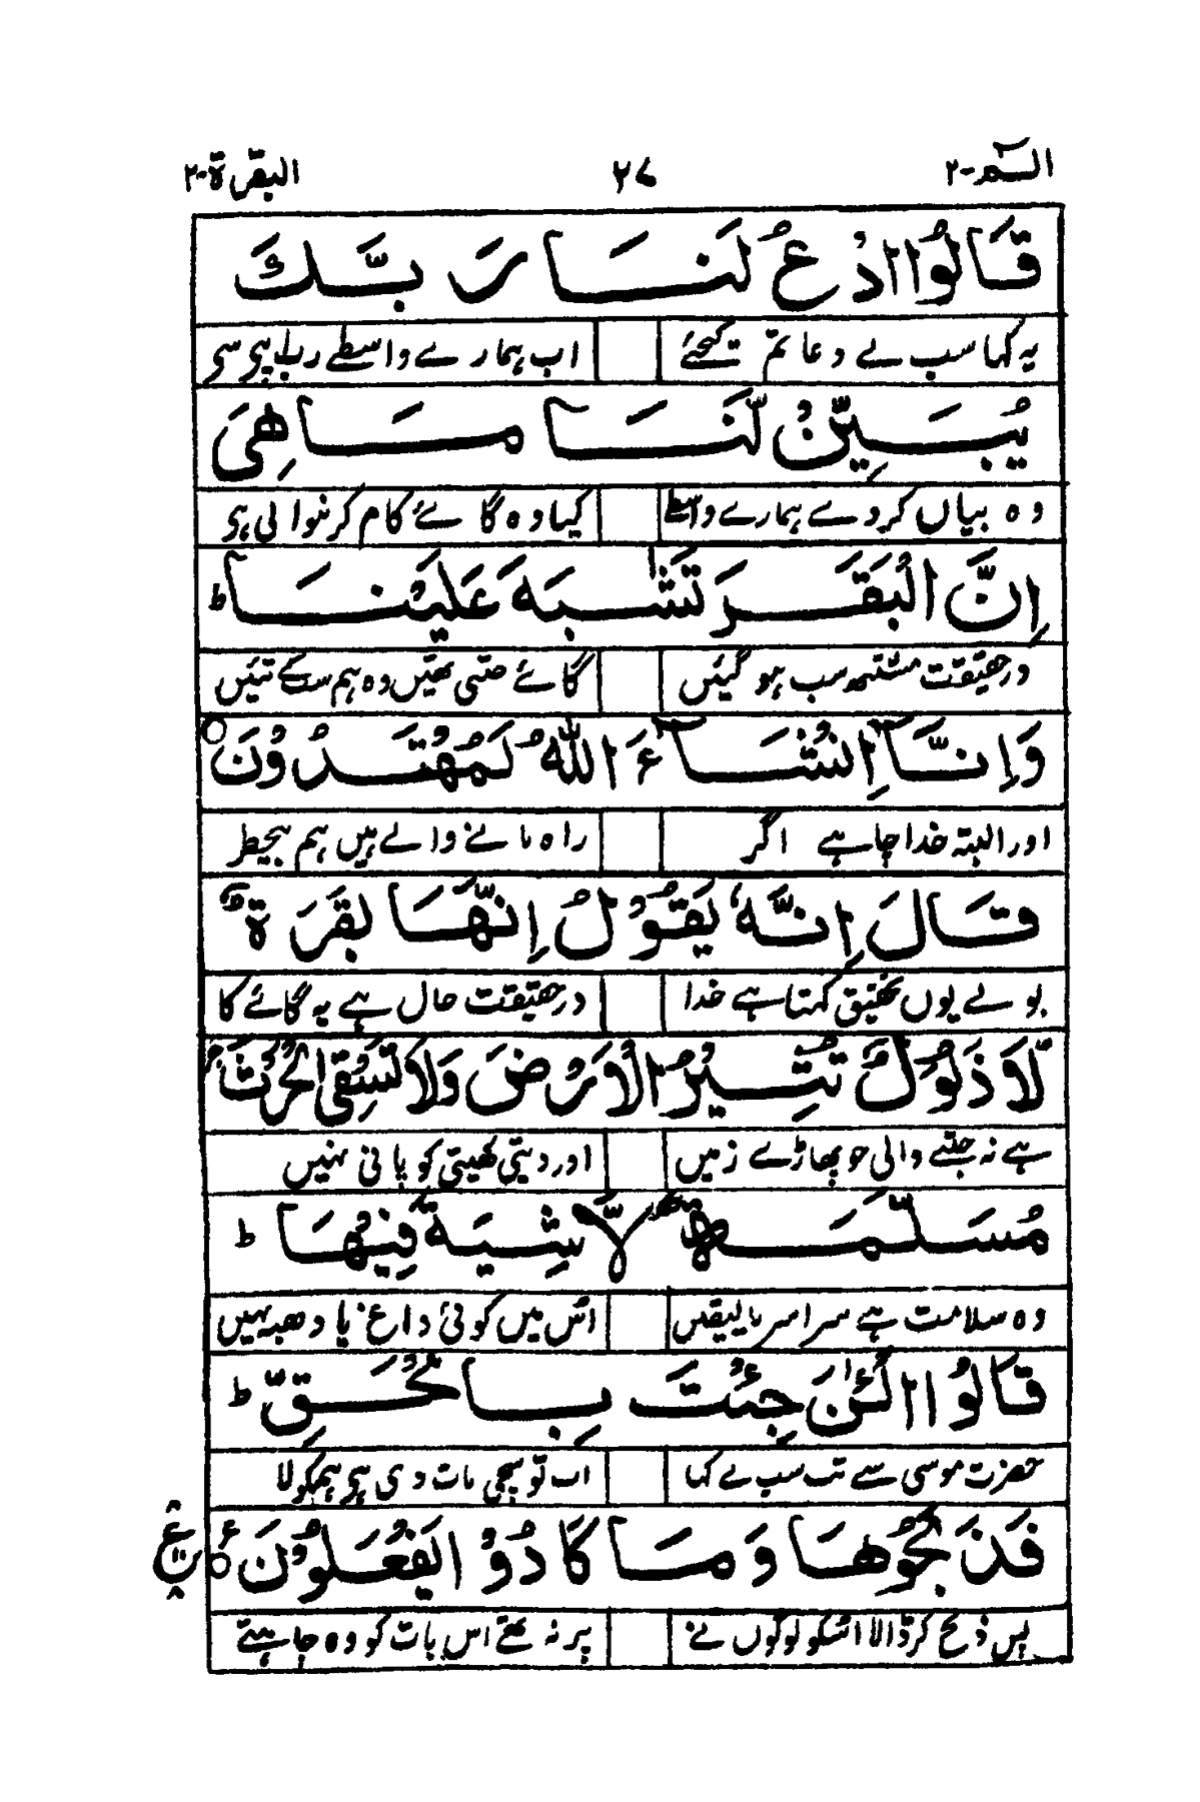 الٓمّٓ-۲ ۲۷ البقرة-۲
قَالُوا ادْعُ لَنَا رَبَّكَ
یہ کہا سب نے دعا تم کیجئے اب ہمارے واسطے رب اپنے سے
يُبَيِّنْ لَّنَا مَا هِيَ
وہ بیاں کردے ہمارے واسطے کیا وہ گائے کام کرنوالی ہے
اِنَّ الْبَقَرَ تَشٰبَهَ عَلَيْنَا ط
درحقیقت مشتبہ سب ہوگئیں گائے جتنی تھیں وہ ہم سب کے تئیں
وَاِنَّآ اِنْ شَآءَ اللهُ لَمُهْتَدُوْنَ ○
اور البتہ خدا چاہے اگر راہ پانے والے ہیں ہم
قَالَ اِنَّهٗ يَقُوْلُ اِنَّهَا بَقَرَةٌ
بولے یوں تحقیق کہتا ہے خدا درحقیقت حال ہے یہ گائے کا
لَّا ذَلُوْلٌ تُثِيْرُ الْاَرْضَ وَلَا تَسْقِى الْحَرْثَ ج
ہے نہ جتنے والی جو پھاڑے زمیں اور دیتی کھیتی کو پانی نہیں
مُسَلَّمَةٌ لَّا شِيَةَ فِيْهَا ط
وہ سلامت ہے سراسر بالیقیں اس میں کوئی داغ یا دھبہ نہیں
قَالُوا الْـٰٔنَ جِئْتَ بِالْحَقِّ ط
حضرت موسی سے تب سب نے کہا اب تو سچی بات دی ہے ہمکو لا
فَذَبَحُوْهَا وَمَا كَادُوْا يَفْعَلُوْنَ ○ ع
پس ذبح کرڈالا اسکو لوگوں نے پر نہ تھے اس بات کو وہ چاہتے